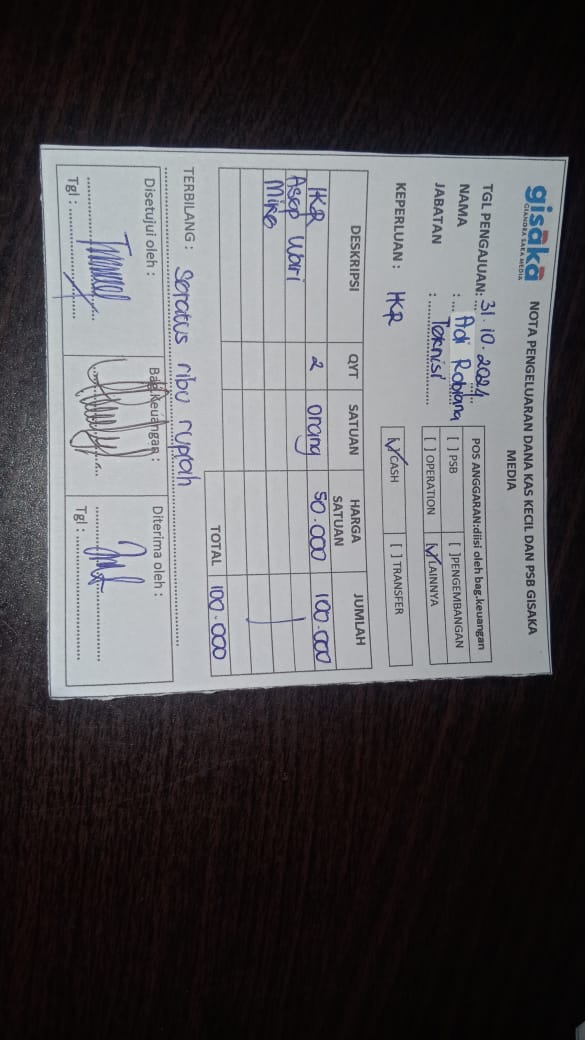 gisaka
GIANDRA SAKA MEDIA
NOTA PENGELUARAN DANA KAS KECIL DAN PSB GISAKA
MEDIA
TGL PENGAJUAN: 31. 10. 2024
NAMA : Adi Robiana
JABATAN : Teknisi
POS ANGGARAN:diisi oleh bag.keuangan
[ ] PSB [ ]PENGEMBANGAN
[ ] OPERATION [✓] LAINNYA
KEPERLUAN : IKR
[✓] CASH [ ] TRANSFER
DESKRIPSI QYT SATUAN HARGA SATUAN JUMLAH
IKR 2 orang 50.000 100.000
Asep Wari
Mine
TOTAL 100.000
TERBILANG : Seratus ribu rupiah
Disetujui oleh : Bag.Keuangan : Diterima oleh :
Tgl : Tgl :